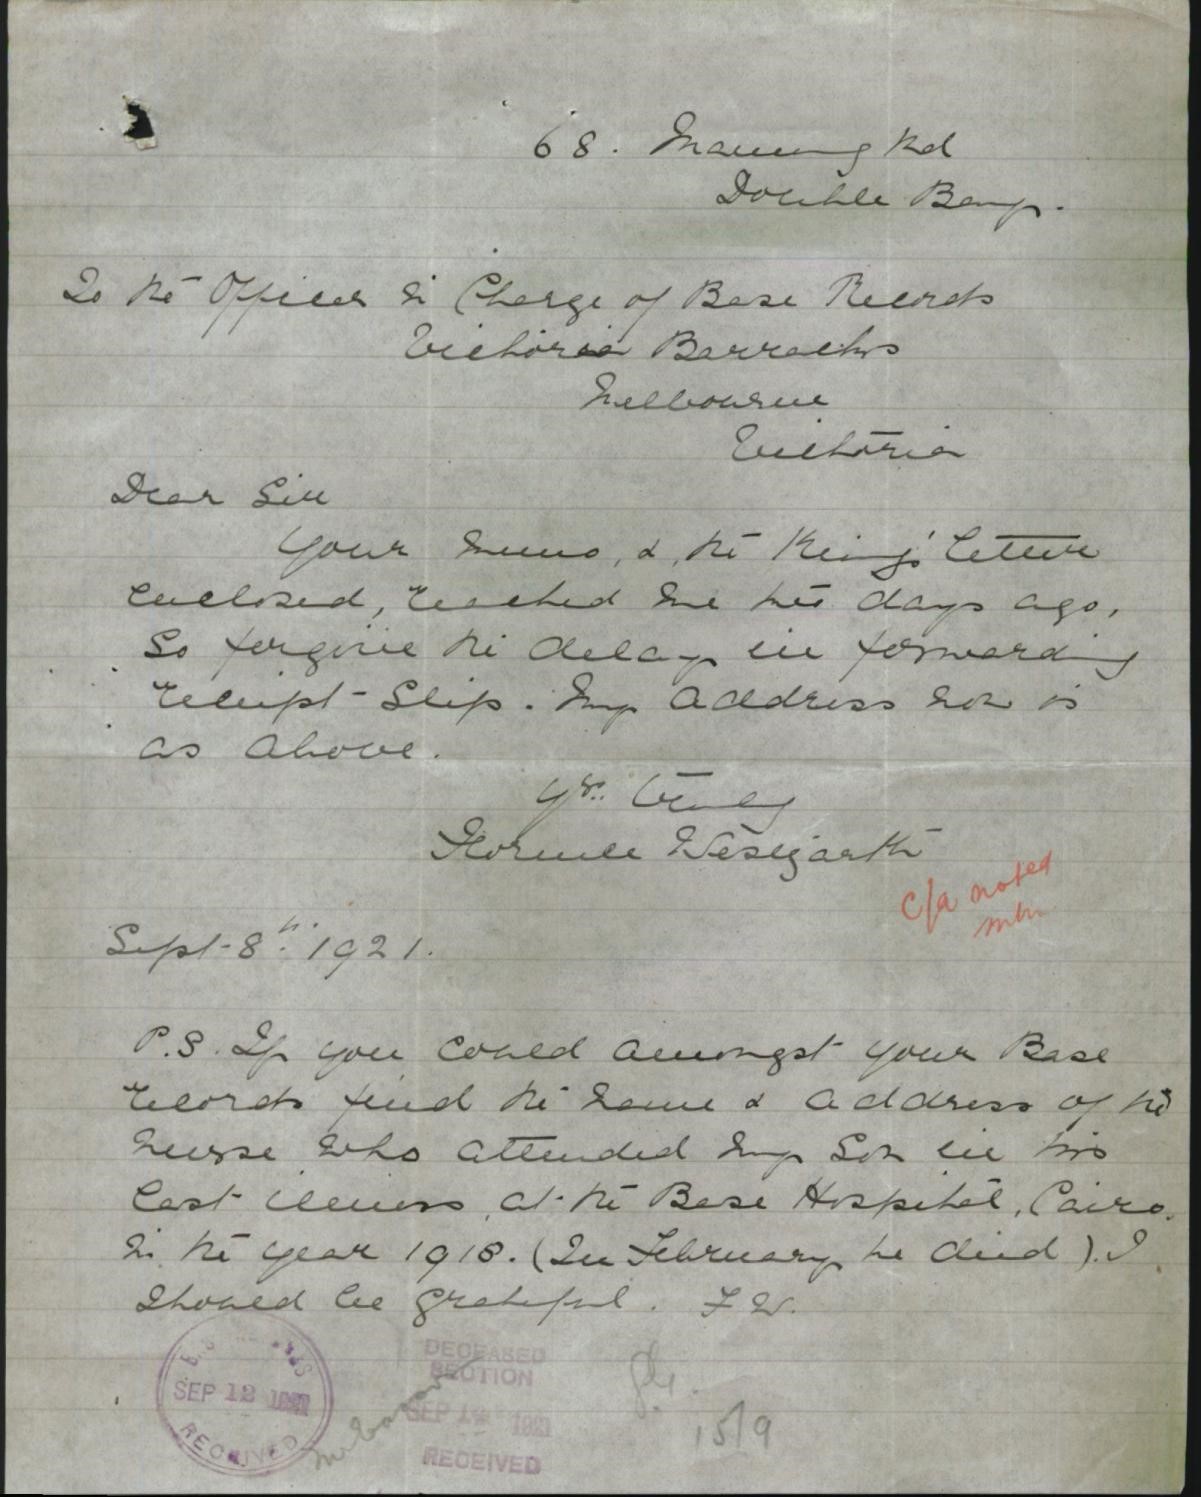 68. Manning Rd
Double Bay.
To the Officer in Charge of Base Records
Victoria Barracks
Melbourne
Victoria
Dear Sir
Your memo, & the King's letter
enclosed, reached me two days ago,
So forgive the delay in forwarding
receipt-slip. My address now is
as above.
Yrs. truly
Florence Westgarth
c/a noted
Sept-8th. 1921.
P.S. If you could amongst your Base
records find the name & address of the
nurse who attended my son in his
last illness, at the Base Hospital, Cairo.
in the year 1918. (In February he died). I
should be grateful. F W.
DECEASED
SECTION
SEP 12 1921
SEP 1921
RECEIVED
RECEIVED
15/9